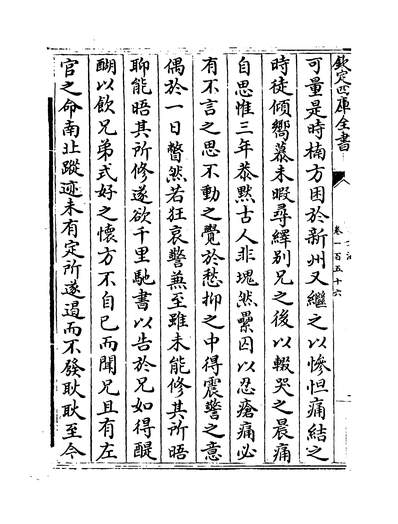 欽定四庫全書
卷一百五十六
可量是時楠方困於新州又繼之以慘怛痛結之
時徒傾嚮慕未暇尋繹别兄之後以輟哭之晨痛
自思惟三年恭黙古人非塊然纍囚以忍瘡痛必
有不言之思不動之覺於愁抑之中得震警之意
偶於一日瞥然若狂哀警兼至雖未能修其所晤
聊能晤其所修遂欲千里馳書以告於兄如得醍
醐以飲兄弟式好之懷方不自已而聞兄且有左
官之命南北蹤迹未有定所遂遏而不發耿耿至今